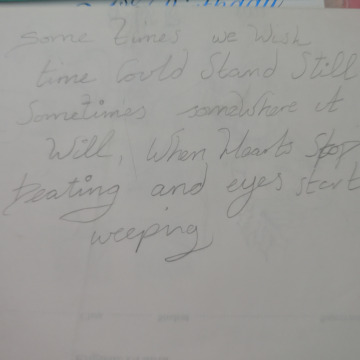 some times we wish
time Could Stand Still
Sometimes somewhere it
Will, When Hearts Stop
beating and eyes start
weeping